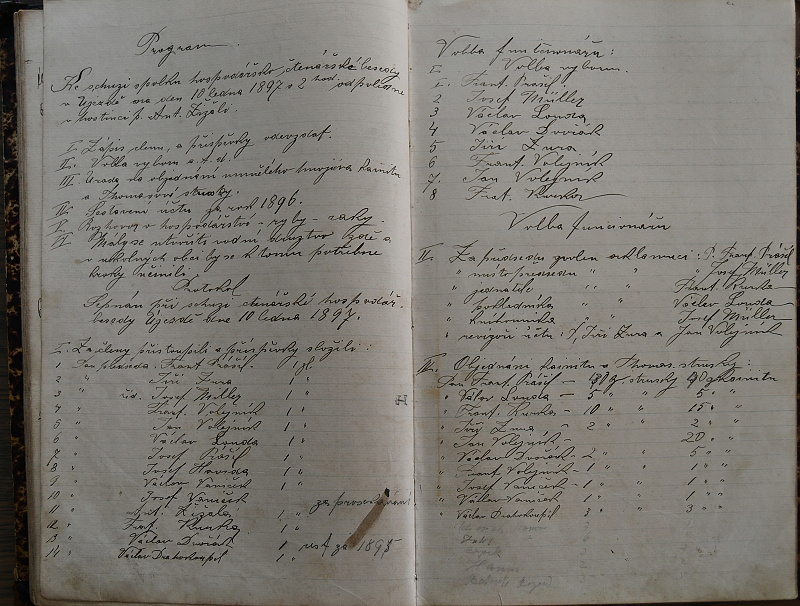 Program.
Ke schůzi spolku hospodářsko čtenářské besedy
v Újezdě na den 10 ledna 1897 v 2 hod. odpoledne
v hostinci p. Ant. Řížáli.
I. Zápis členů, a příspěvky odevzdat.
II. Volba výboru a. t. d.
III. Úrada na objednání umělého hnojiva kainitu
a Thomasovi strusky.
IV. Sestavení účtu za rok 1896.
V. Rozhovor o hospodářství – ryby – raky.
VI. Má by se utvořit vodní družstvo zde a
v okolných obcí by se k tomu potřebné
kroky učinili
Protokol
Sepsán při schůzi čtenářské hospodář.
besedy Újezdě dne 10 ledna 1897.
I. Za členy přistoupili a příspěvky složili:
1 Pan předseda Frant. Prášil. 1 zl.
2 " Jiří Zura 1 "
3 " Josef Müller 1 "
4 " Frant. Volejník 1 "
5 " Jan Volejník 1 "
6 " Václav Londa 1 "
7 " Josef Prášil 1 "
8 " Josef 1 "
9 " Václav Vaníček 1 "
10 " Josef Vaníček
11 " Ant. Řížáli 1 "
12 " Frat. Kurka 1 "
13 " Václav Dvořák 1 " rest. za 1895
14 " Václav Drahokoupil 1 "
Volba funcionářů:
I. Volba výboru.
1. Frant. Prášil.
2 Josef Müller
3 Václav Londa
4 Václav Dvořák
5 Jiří Zura
6 Frant. Volejník
7. Jan Volejník
8 Frat. Kurka
Volba funcionářů
II. Za předsedu zvolen aklamací: P. Frant. Prášil
" místopředsedu " " " Josef Müller
" jednatele " " Frant. Kurka
" pokladníka " " Václav Londa
" knihovníka " " Josef Müller
" revizoři účtů: Jiří Zura a Jan Volejník
III. Objednání kainitu a Thomas. strusky:
Pan Frant. Prášil – strusky kainitu
" Václav Londa – 5 " " 5 " "
" Frant. Kurka – 10 " " 15 " "
" Jiří Zura – 2 " " 2 " "
" Jan Volejník – 20 " "
" Václav Dvořák – 2 " " 5 " "
" Frant. Volejník – 1 " " 1 " "
" Josef Vaníček – 1 " " 1 " "
" Václav Vaníček 1 " " 1 " "
" Václav Drahokoupil 3 " " 3 " "